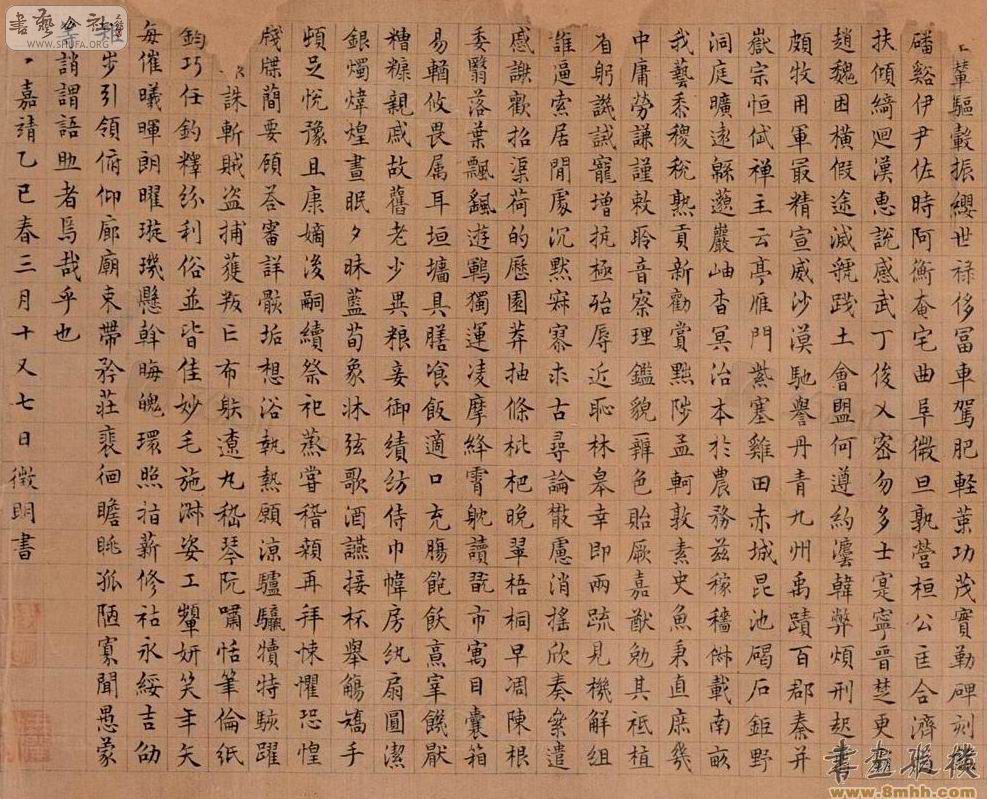 輦驅轂振纓世祿侈富車駕肥輕策功茂實勒碑刻
磻谿伊尹佐時阿衡奄宅曲阜微旦孰營桓公匡合濟
扶傾綺迴漢惠說感武丁俊乂密勿多士寔寧晉楚更
趙魏困橫假途滅虢踐土會盟何遵約灋韓弊煩刑起
頗牧用軍最精宣威沙漠馳譽丹青九州禹蹟百郡秦并
嶽宗恒岱禪主云亭雁門紫塞雞田赤城昆池碣石鉅野
洞庭曠遠緜邈巖岫杳冥治本於農務茲稼穡俶載南畝
我藝黍稷稅熟貢新勸賞黜陟孟軻敦素史魚秉直庶幾
中庸勞謙謹敕聆音察理鑑貌辨色貽厥嘉猷勉其祗植
省躬譏誡寵增抗極殆辱近恥林皋幸即兩疏見機解組
誰逼索居閒處沉默寂寥求古尋論散慮消搖欣奏累遣
慼謝歡招渠荷的歷園莽抽條枇杷晚翠梧桐早凋陳根
委翳落葉飄颻遊鵾獨運凌摩絳霄耽讀翫市寓目囊箱
易輶攸畏属耳垣墻具膳飡飯適口充腸飽飫烹宰饑厭
糟糠親戚故舊老少異粮妾御績紡侍巾帷房紈扇圓潔
銀燭煒煌晝眠夕寐藍筍象牀弦歌酒讌接杯舉觴矯手
頓足悅豫且康嫡後嗣續祭祀蒸嘗稽顙再拜悚懼恐惶
牋牒簡要顧荅審詳骸垢想浴執熱願涼驢騾犢特駭躍
誅斬賊盜捕獲叛亡布射遼丸嵇琴阮嘯恬筆倫紙
鈞巧任釣釋紛利俗並皆佳妙毛施淑姿工顰妍笑年矢
每催曦暉朗曜璇璣懸斡晦魄環照指薪修祜永綏吉劭
矩步引領俯仰廊廟束帶矜莊裴徊瞻眺孤陋寡聞愚蒙
等誚謂語助者焉哉乎也
嘉靖乙巳春三月十又七日徵明書
書藝公社
WWW.SHUFA.ORG
書畫縱橫
www.8mhh.com